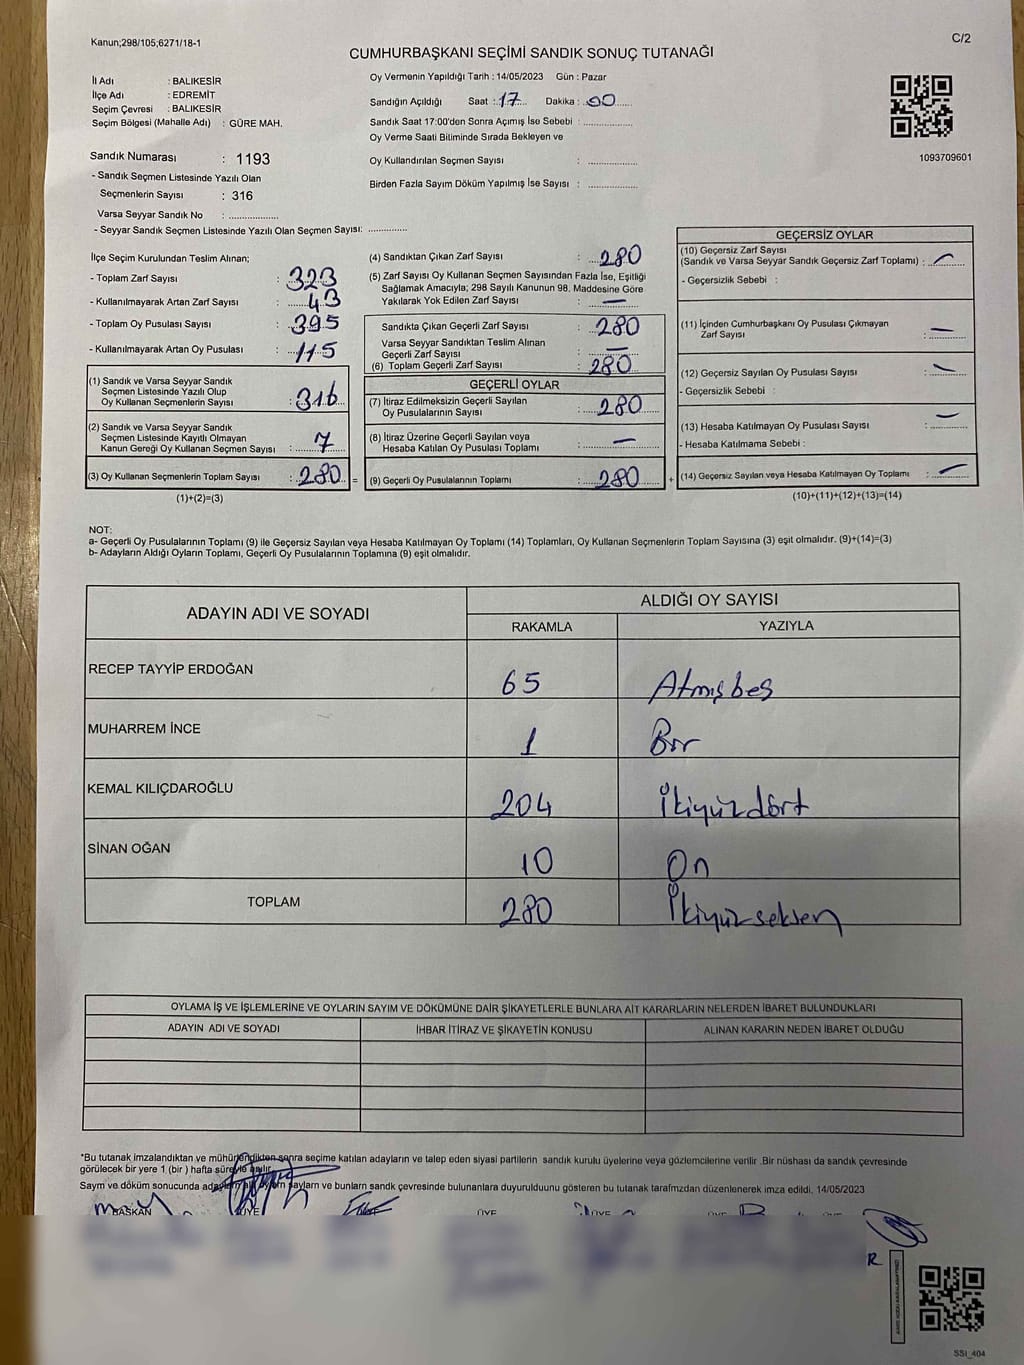 Kanun;298/105;6271/18-1
C/2
CUMHURBAŞKANI SEÇİMİ SANDIK SONUÇ TUTANAĞI
İl Adı : BALIKESİR
İlçe Adı : EDREMİT
Seçim Çevresi : BALIKESİR
Seçim Bölgesi (Mahalle Adı) : GÜRE MAH.
Oy Vermenin Yapıldığı Tarih : 14/05/2023 Gün : Pazar
Sandığın Açıldığı Saat : 17 Dakika : 00
Sandık Saat 17:00'den Sonra Açımış İse Sebebi :
Oy Verme Saati Bitiminde Sırada Bekleyen ve
Oy Kullandırılan Seçmen Sayısı :
Birden Fazla Sayım Döküm Yapılmış İse Sayısı :
1093709601
Sandık Numarası : 1193
- Sandık Seçmen Listesinde Yazılı Olan
Seçmenlerin Sayısı : 316
Varsa Seyyar Sandık No :
- Seyyar Sandık Seçmen Listesinde Yazılı Olan Seçmen Sayısı:
İlçe Seçim Kurulundan Teslim Alınan;
- Toplam Zarf Sayısı : 323
- Kullanılmayarak Artan Zarf Sayısı : 43
- Toplam Oy Pusulası Sayısı : 395
- Kullanılmayarak Artan Oy Pusulası : 115
(1) Sandık ve Varsa Seyyar Sandık
Seçmen Listesinde Yazılı Olup
Oy Kullanan Seçmenlerin Sayısı : 316
(2) Sandık ve Varsa Seyyar Sandık
Seçmen Listesinde Kayıtlı Olmayan
Kanun Gereği Oy Kullanan Seçmen Sayısı : 7
(3) Oy Kullanan Seçmenlerin Toplam Sayısı : 280 =
(1)+(2)=(3)
(4) Sandıktan Çıkan Zarf Sayısı : 280
(5) Zarf Sayısı Oy Kullanan Seçmen Sayısından Fazla İse, Eşitliği
Sağlamak Amacıyla; 298 Sayılı Kanunun 98. Maddesine Göre
Yakılarak Yok Edilen Zarf Sayısı : —
Sandıkta Çıkan Geçerli Zarf Sayısı : 280
Varsa Seyyar Sandıktan Teslim Alınan
Geçerli Zarf Sayısı : —
(6) Toplam Geçerli Zarf Sayısı : 280
GEÇERLİ OYLAR
(7) İtiraz Edilmeksizin Geçerli Sayılan
Oy Pusulalarının Sayısı : 280
(8) İtiraz Üzerine Geçerli Sayılan veya
Hesaba Katılan Oy Pusulası Toplamı : —
(9) Geçerli Oy Pusulalarının Toplamı : 280 +
GEÇERSİZ OYLAR
(10) Geçersiz Zarf Sayısı
(Sandık ve Varsa Seyyar Sandık Geçersiz Zarf Toplamı) : —
- Geçersizlik Sebebi :
(11) İçinden Cumhurbaşkanı Oy Pusulası Çıkmayan
Zarf Sayısı : —
(12) Geçersiz Sayılan Oy Pusulası Sayısı : —
- Geçersizlik Sebebi :
(13) Hesaba Katılmayan Oy Pusulası Sayısı : —
- Hesaba Katılmama Sebebi :
(14) Geçersiz Sayılan veya Hesaba Katılmayan Oy Toplamı : —
(10)+(11)+(12)+(13)=(14)
NOT:
a- Geçerli Oy Pusulalarının Toplamı (9) ile Geçersiz Sayılan veya Hesaba Katılmayan Oy Toplamı (14) Toplamları, Oy Kullanan Seçmenlerin Toplam Sayısına (3) eşit olmalıdır. (9)+(14)=(3)
b- Adayların Aldığı Oyların Toplamı, Geçerli Oy Pusulalarının Toplamına (9) eşit olmalıdır.
ADAYIN ADI VE SOYADI ALDIĞI OY SAYISI
RAKAMLA YAZIYLA
RECEP TAYYİP ERDOĞAN 65 Atmışbeş
MUHARREM İNCE 1 Bır
KEMAL KILIÇDAROĞLU 204 İkiyüzdört
SİNAN OĞAN 10 On
TOPLAM 280 İkiyüzseksen
OYLAMA İŞ VE İŞLEMLERİNE VE OYLARIN SAYIM VE DÖKÜMÜNE DAİR ŞİKAYETLERLE BUNLARA AİT KARARLARIN NELERDEN İBARET BULUNDUKLARI
ADAYIN ADI VE SOYADI İHBAR İTİRAZ VE ŞİKAYETİN KONUSU ALINAN KARARIN NEDEN İBARET OLDUĞU
*Bu tutanak imzalandıktan ve mühürlendikten sonra seçime katılan adayların ve talep eden siyasi partilerin sandık kurulu üyelerine veya gözlemcilerine verilir .Bir nüshası da sandık çevresinde
görülecek bir yere 1 (bir ) hafta süreyle asılır.
Sayım ve döküm sonucunda sayları ve bunların sandk çevresinde bulunanlara duyurulduunu gösteren bu tutanak tarafmzdan düzenlenerek imza edildi. 14/05/2023
BAŞKAN ÜYE ÜYE ÜYE
SSI_404